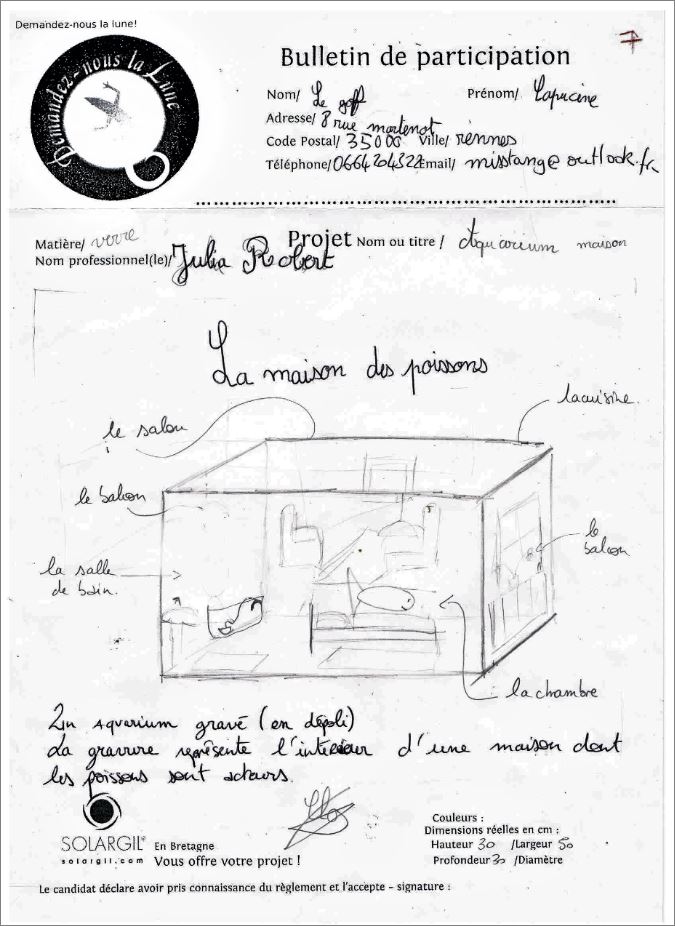 Demandez-nous la lune!
Demandez-nous la Lune
Bulletin de participation
7
Nom/ Le goff Prénom/ Capucine
Adresse/ 8 rue martenot
Code Postal/ 35000 Ville/ rennes
Téléphone/ 0664204322 Email/ misstang@outlook.fr
Matière/ verre Projet Nom ou titre / Aquarium maison
Nom professionnel(le)/ Julia Robert
La maison des poissons
la cuisine
le salon
le balcon
le balcon
la salle de bain.
la chambre
Un aquarium gravé (en dépoli)
La gravure représente l'intérieur d'une maison dont
les poissons sont acteurs.
SOLARGIL En Bretagne
solargil.com Vous offre votre projet !
Couleurs :
Dimensions réelles en cm :
Hauteur 30 /Largeur 50
Profondeur 30 /Diamètre
Le candidat déclare avoir pris connaissance du règlement et l'accepte - signature :